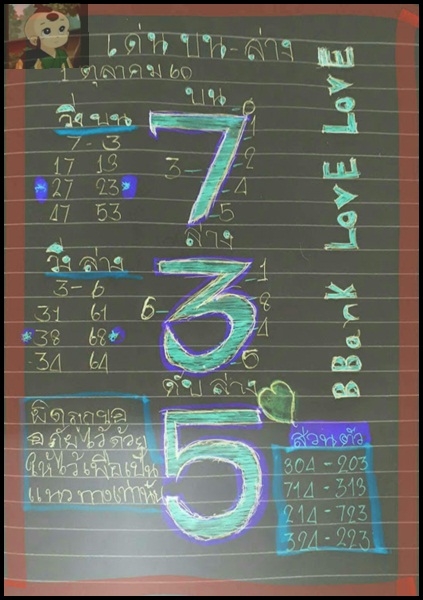 เด่น บน - ล่าง
1 ตุลาคม 60
วิ่ง บน
7 - 3
17 13
27 23
47 53
บน
7
0
1
3 2
4
5
ล่าง
3
1
6 8
4
5
วิ่ง ล่าง
3 - 6
31 61
38 68
34 64
ดับ ล่าง
5
ผิดถูกขอ
อภัยไว้ด้วย
ให้ไว้เพื่อเป็น
แนวทางเท่านั้น
ส่วนตัว
304 - 203
714 - 313
214 - 723
324 - 223
BBank LovE LovE LovE